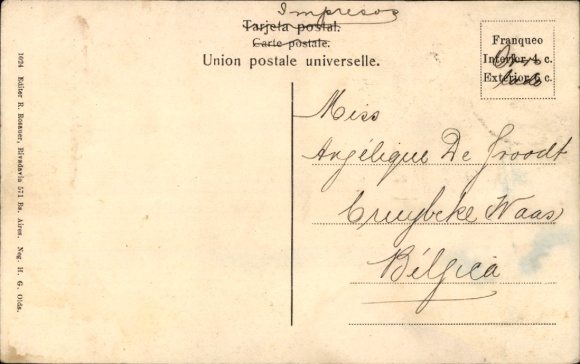 Impresos
Tarjeta postal.
Carte postale.
Union postale universelle.
Franqueo
Interior 4 c.
Exterior 6 c.
Miss
Angélique De Groodt
Cruybeke Waas
Bélgica
1024 Editer R. Rosauer, Rivadavia 571 Bs. Aires. Neg. H. G. Olds.